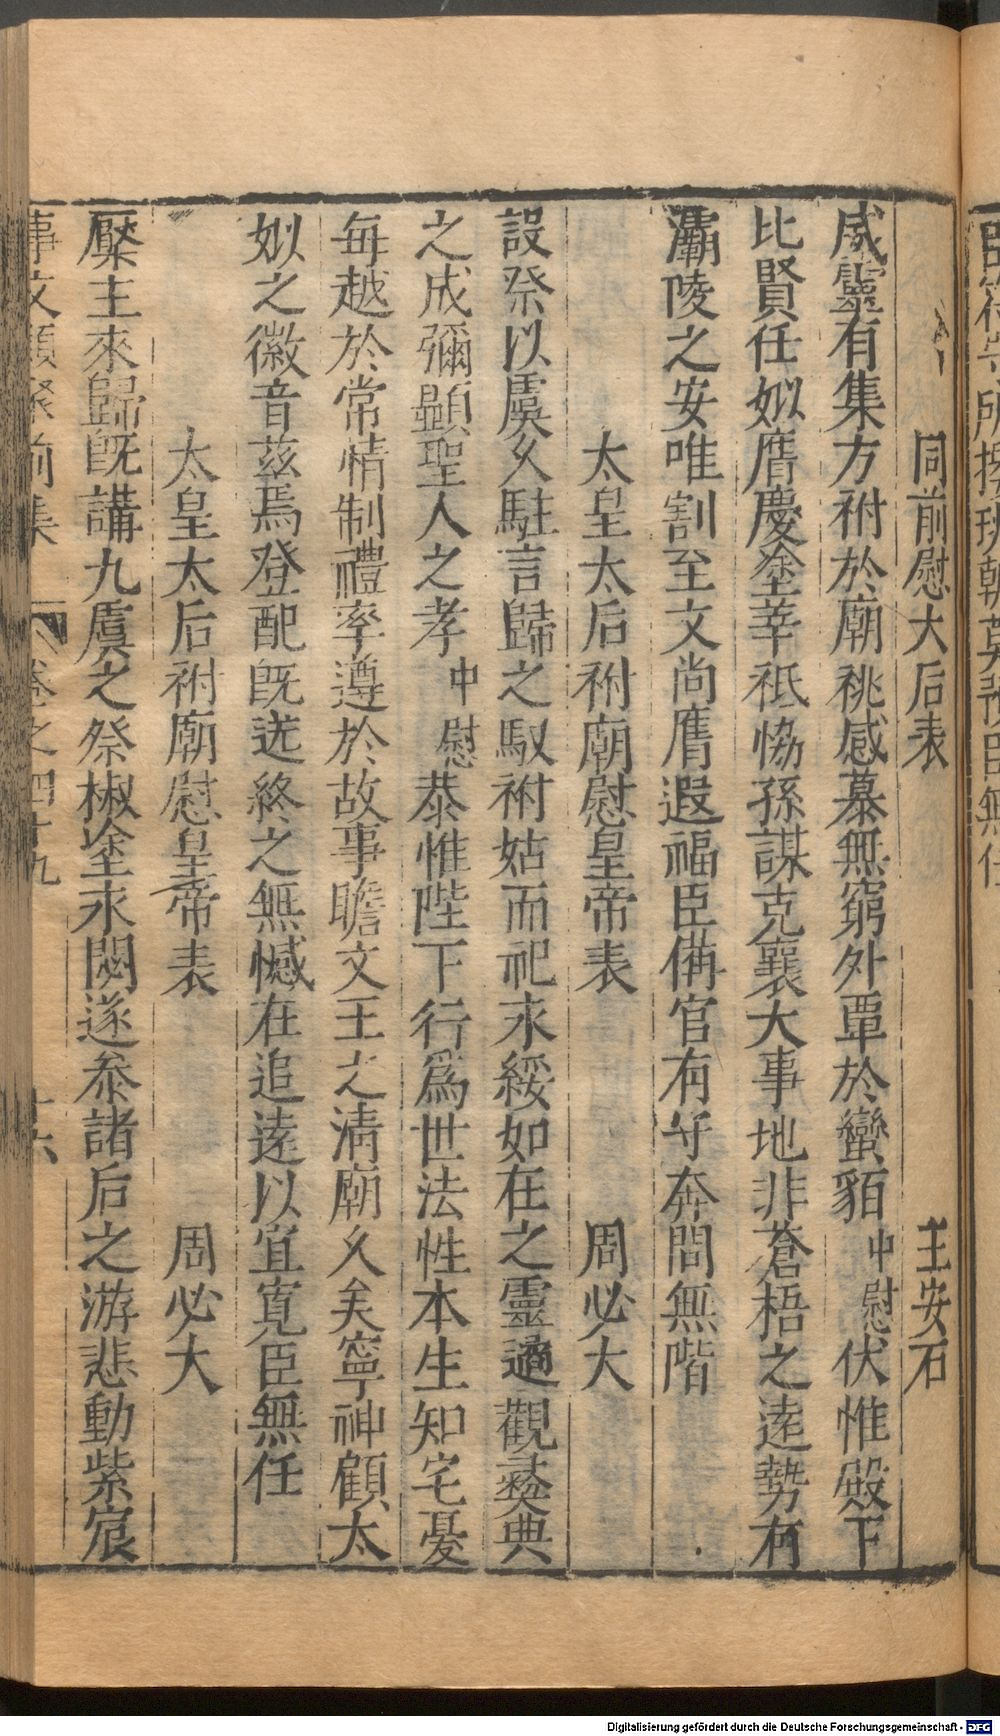 同前慰大后表　王安石
威靈有集方祔於廟祧感慕無窮外覃於蠻貊中慰伏惟殿下
比賢任姒膺慶塗莘祗恊孫謀克襄大事地非蒼梧之遠勢有
灞陵之安唯割至文尚膺遐福臣備官有守奔問無階
太皇太后祔廟慰皇帝表　周必大
設祭以虞久駐言歸之馭祔姑而祀永綏如在之靈遹觀彝典
之成彌顯聖人之孝中慰恭惟陛下行爲世法性本生知宅憂
每越於常情制禮率遵於故事瞻文王之清廟久矣寧神顧太
姒之徽音兹焉登配旣送終之無憾在追遠以宜寬臣無任
太皇太后祔廟慰皇帝表　周必大
檿主來歸旣講九虞之祭椒塗永閟遂叅諸后之游悲動紫宸
事文類聚前集　卷之四十九　十六
Digitalisierung gefördert durch die Deutsche Forschungsgemeinschaft - DFG